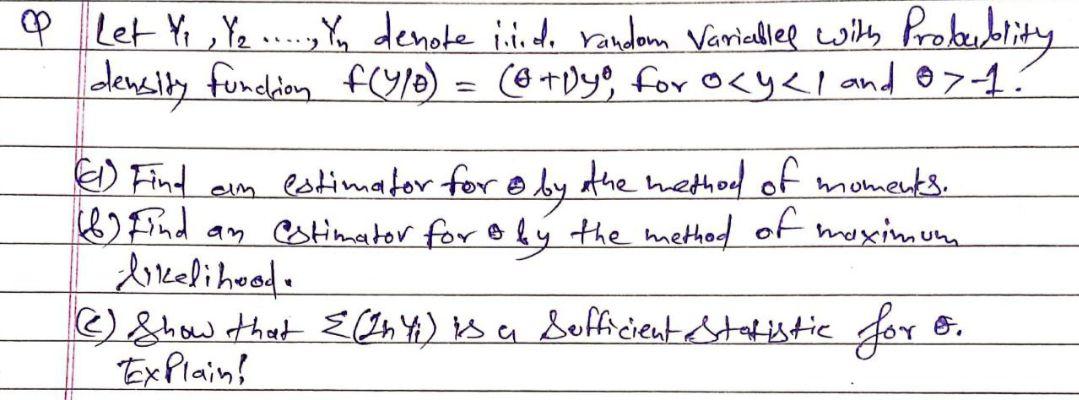 Q Let Y₁, Y₂ ....., Yₙ denote i.i.d. random Variables with Probability
density function f(y/θ) = (θ+1)y^θ, for 0<y<1 and θ>-1.
(a) Find an estimator for θ by the method of moments.
(b) Find an estimator for θ by the method of maximum
likelihood.
(c) Show that Σ(ln Yᵢ) is a Sufficient Statistic for θ.
Explain!